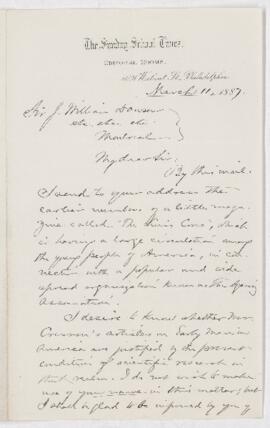 The Sunday School Times.
Editorial Rooms.
Walnut St., Philadelphia
March 11, 1887.
Sir J. William Dawson
etc. etc. etc.
Montreal
My dear Sir:
By this mail
I send to your address the
earlier numbers of a little maga-
zine called which
is having a large circulation among
the young people of America, in con-
nection with a popular and wide
spread organization known as the Agassiz
Association.
I desire to know whether Mr.
articles on Early Man in
America are justified by the present
condition of scientific research in
that realm. I do not wish to make
use of your name in this matter, but
I shall be glad to be informed by you if